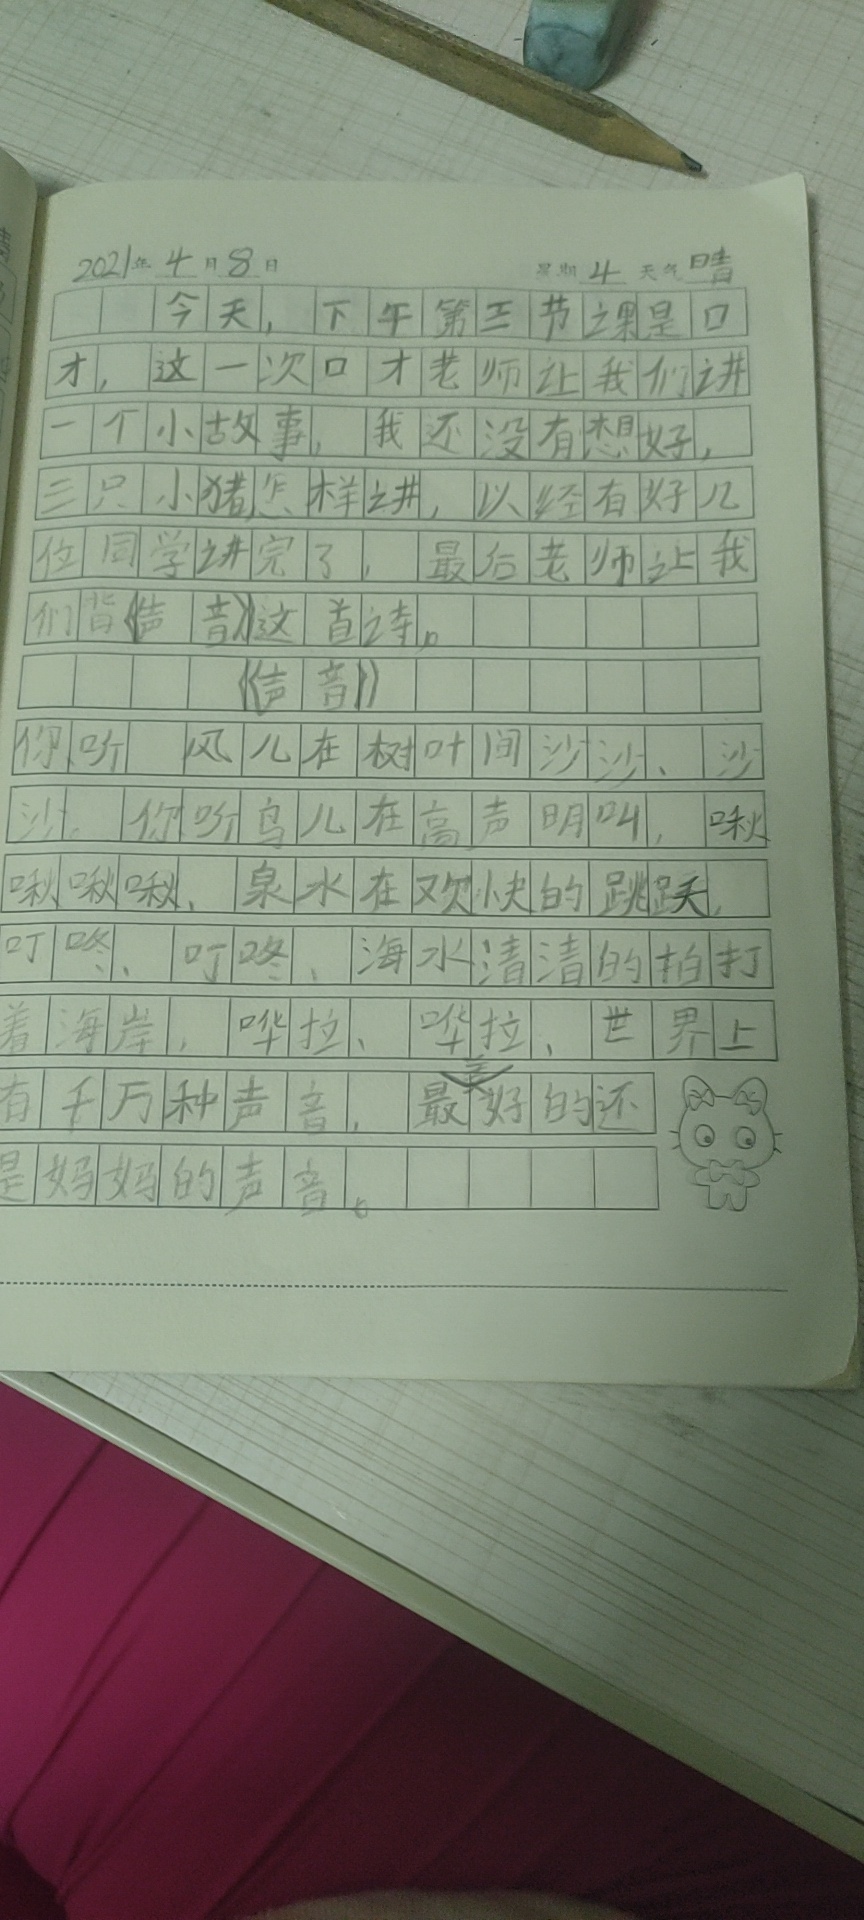 2021年4月8日 星期4 天气晴
今天，下午第三节课是口
才，这一次口才老师让我们讲
一个小故事，我还没有想好，
三只小猪怎样讲，以经有好几
位同学讲完了，最后老师让我
们背《声音》这首诗。
《声音》
你听 风儿在树叶间沙沙、沙
沙。你听鸟儿在高声明叫，啾
啾啾啾、泉水在欢快的跳跃，
叮咚、叮咚、海水清清的拍打
着海岸，哗拉、哗拉、世界上
有千万种声音，最美好的还
是妈妈的声音。